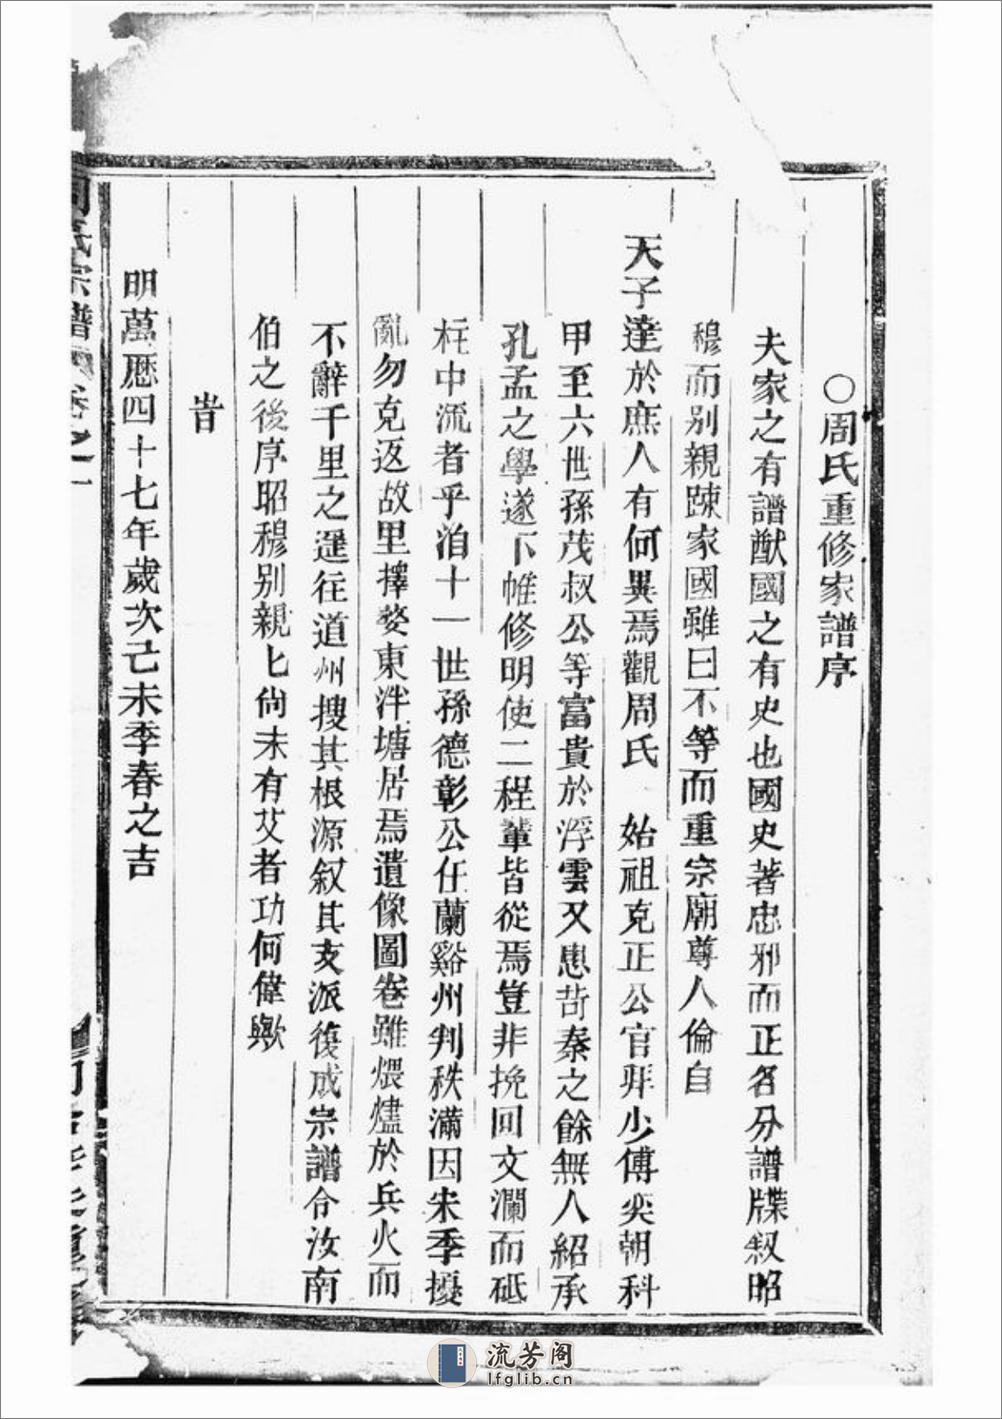 ○周氏重修家譜序
夫家之有譜猷國之有史也國史著忠邪而正名分譜牒叙昭
穆而别親踈家國雖曰不等而重宗廟尊人倫自
天子達於庶人有何異焉觀周氏 始祖克正公官拜少傅奕朝科
甲至六世孫茂叔公等富貴於浮雲又患苛秦之餘無人紹承
孔孟之學遂下帷修明使二程輩皆從焉豈非挽回文瀾而砥
柱中流者乎洎十一世孫德彰公任蘭谿州判秩滿因宋季擾
亂勿克返故里擇婺東泮塘居焉遺像圖卷雖煨燼於兵火而
不辭千里之遥往道州搜其根源叙其支派復成宗譜令汝南
伯之後序昭穆别親匕尚未有艾者功何偉歟
旹
明萬厯四十七年歲次己未季春之吉
氏宗譜 卷之一
流芳阁
lfglib.cn